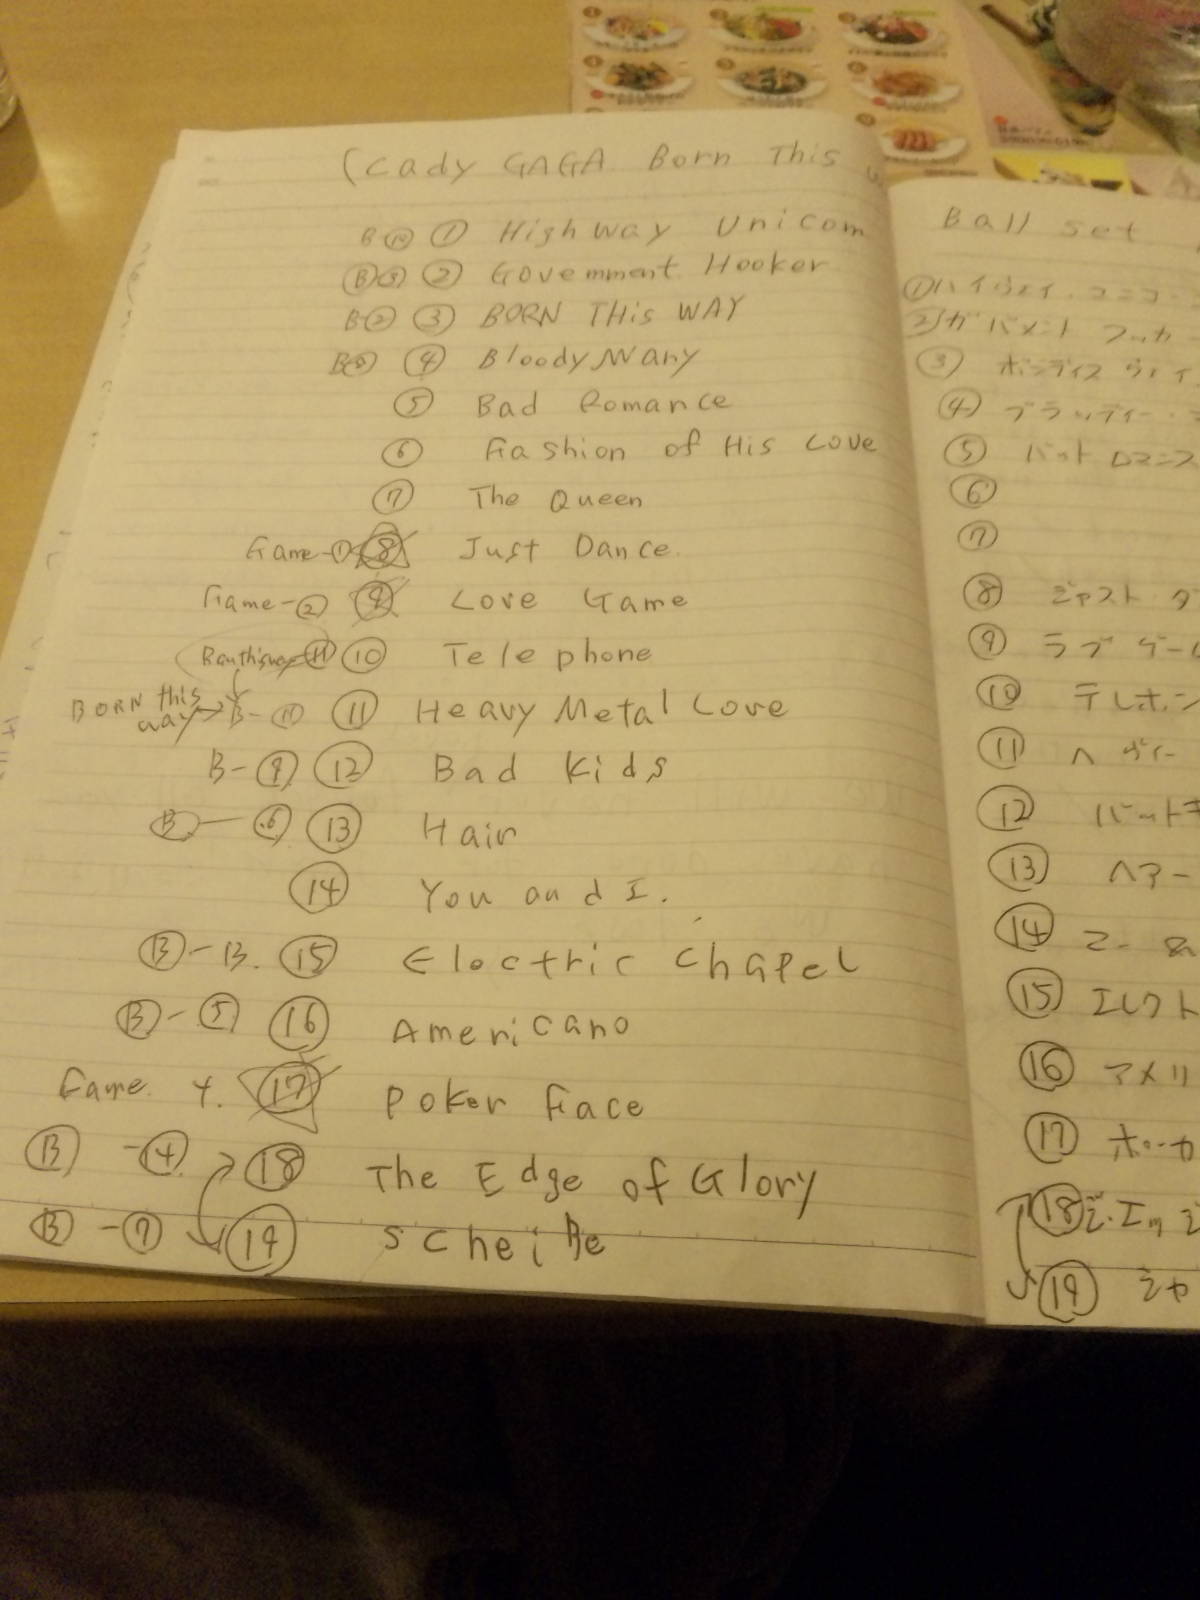 (Lady GAGA Born This
B ① Highway Unicorn
B ② Government Hooker
B-② ③ BORN THis WAY
B ④ Bloody Mary
⑤ Bad Romance
⑥ Fashion of His Love
⑦ The Queen
Game-① ⑧ Just Dance.
Game-② ⑨ Love Game
⑩ Telephone
BORN this way → B- ⑪ Heavy Metal Love
B-⑨ ⑫ Bad Kids
B-⑥ ⑬ Hair
⑭ You and I.
B-13. ⑮ Electric Chapel
B-⑤ ⑯ Americano
Game 4. ⑰ Poker Face
B-④ ⑱ The Edge of Glory
B-⑦ ⑲ ScheiBe
Ball set
① ハイウェイ・ユニコ
② ガバメント フッカ
③ ボンディス ウェイ
④ ブラッディー・
⑤ バット ロマンス
⑥
⑦
⑧ ジャスト ダ
⑨ ラブ ゲーム
⑩ テレホン
⑪ ヘヴィー
⑫ バットキ
⑬ ヘアー
⑭ ユー &
⑮ エレクト
⑯ アメリ
⑰ ポーカ
⑱ ジ・エッジ
⑲ シャ